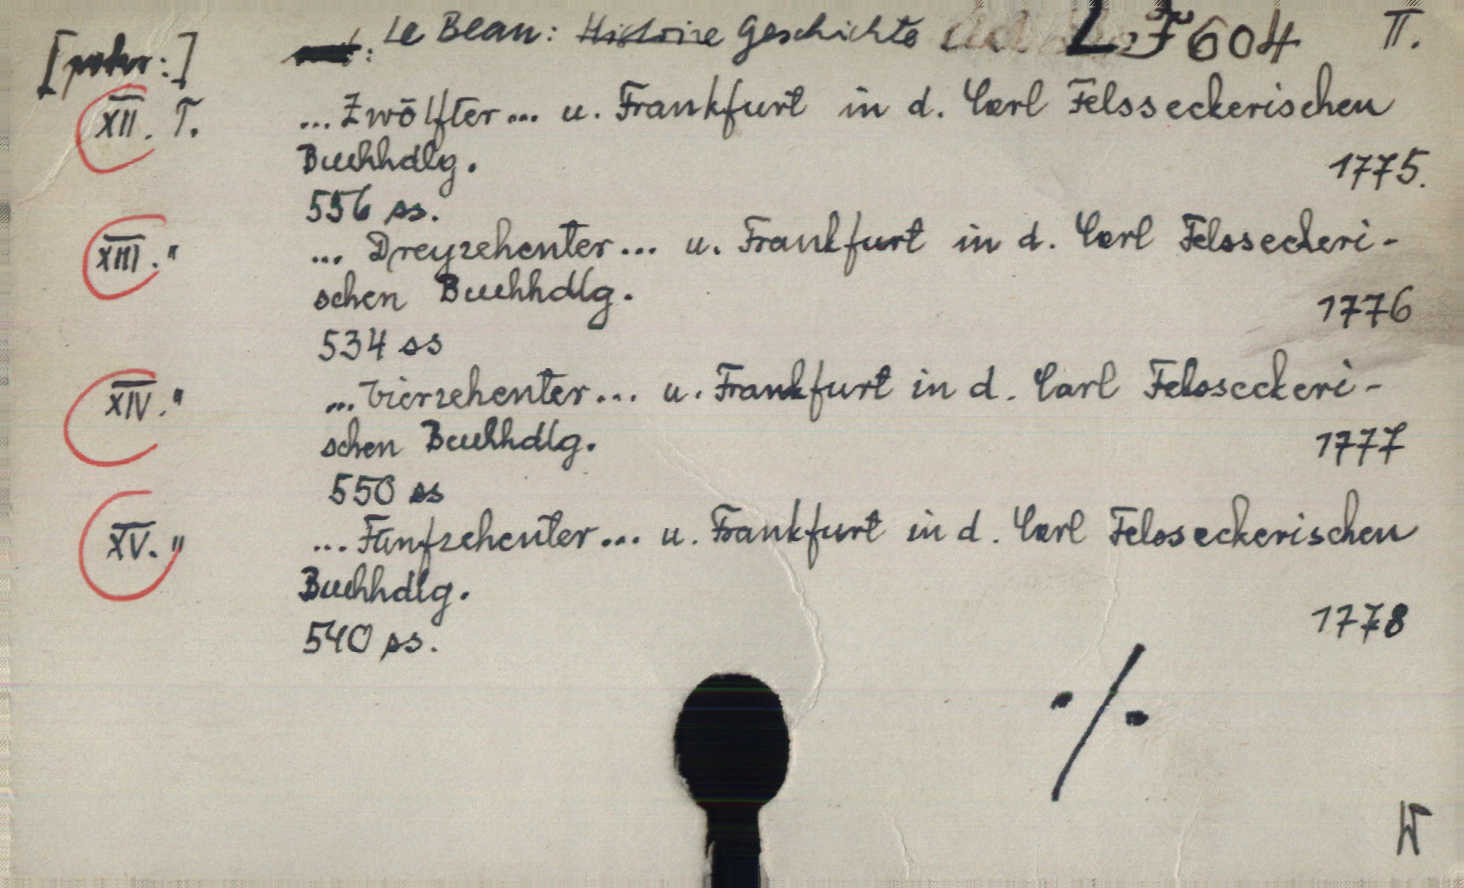 [pokr:] Le Beau: Histoire Geschichte ad L F 604 II.
XII. T. ...Zwölfter... u. Frankfurt in d. Carl Felsseckerischen
Buchhdlg. 1775.
556 ss.
XIII. " ... Dreyzehenter... u. Frankfurt in d. Carl Felsseckeri-
schen Buchhdlg. 1776
534 ss
XIV. " ...Vierzehenter... u. Frankfurt in d. Carl Felsseckeri-
schen Buchhdlg. 1777
550 ss
XV. " ...Funfzehenter... u. Frankfurt in d. Carl Felsseckerischen
Buchhdlg. 1778
540 ss.
./.
W